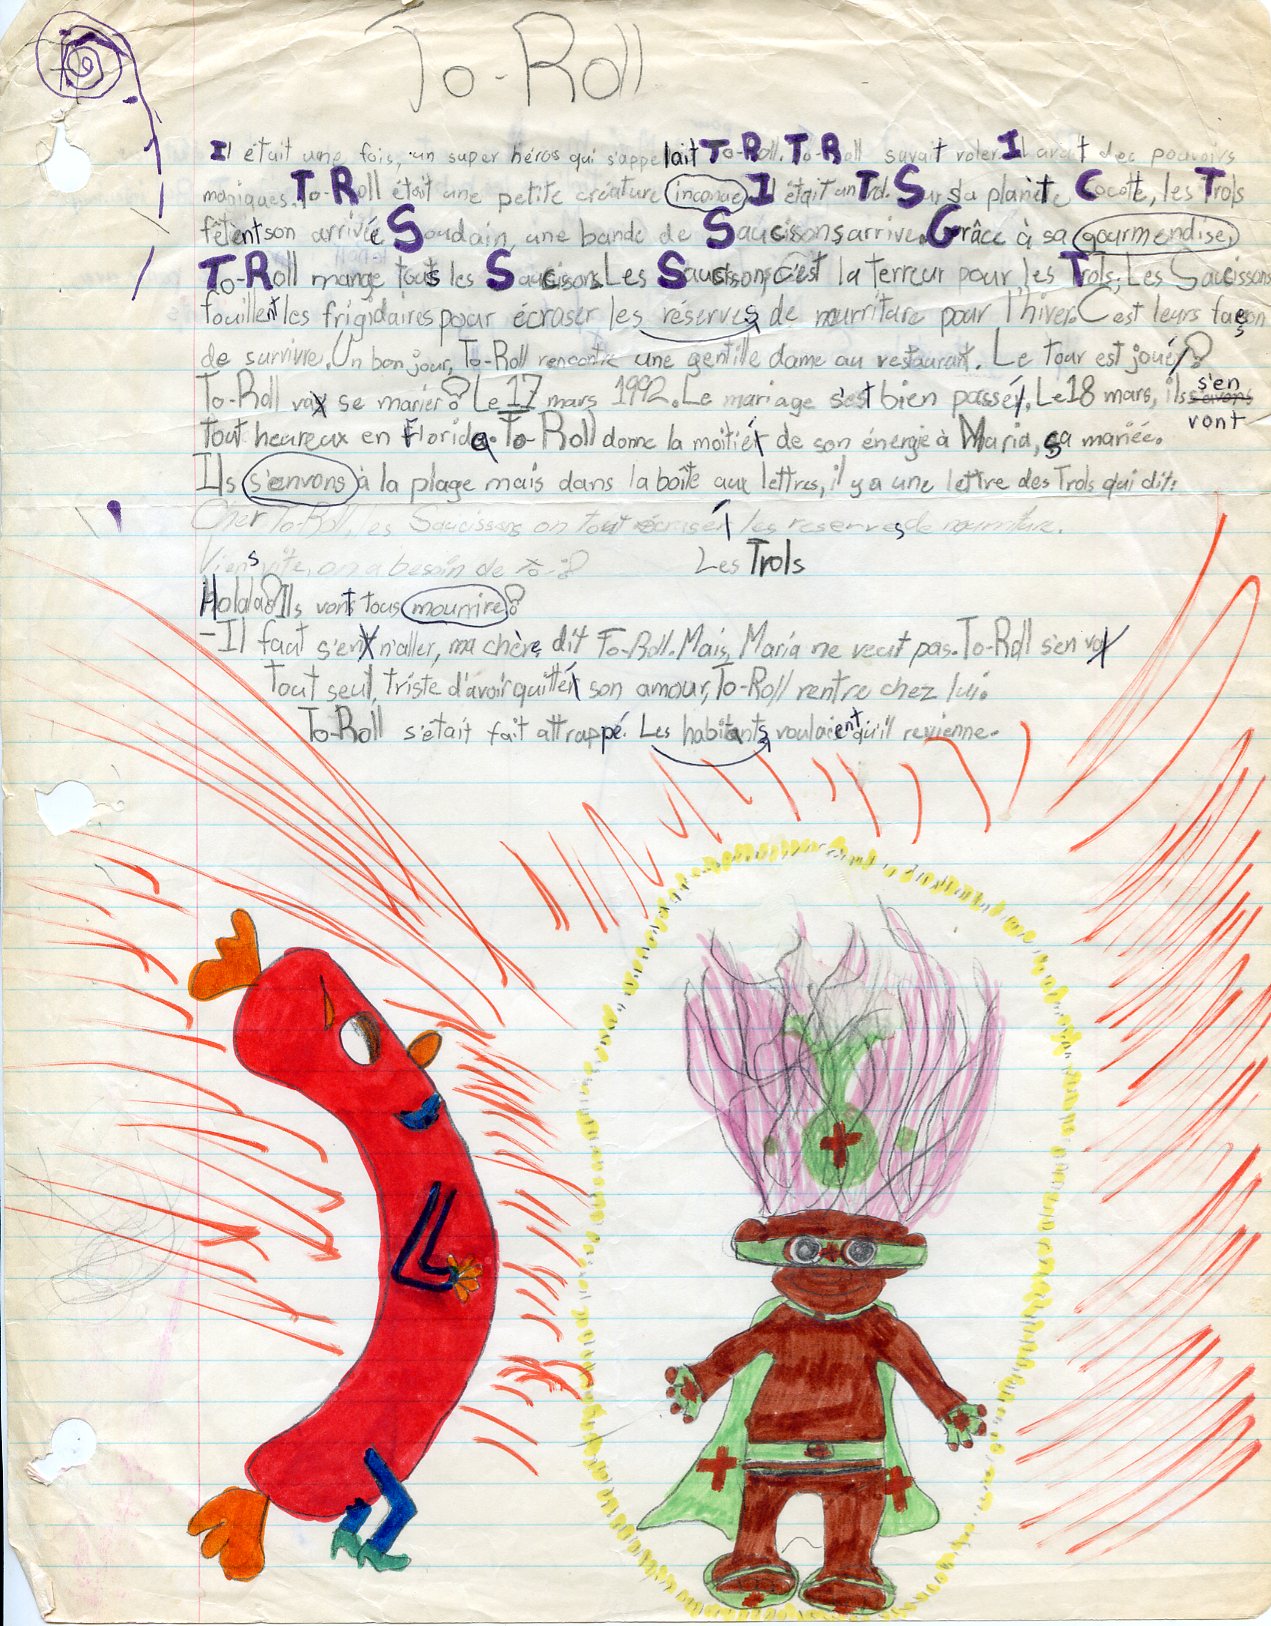 To-Roll
Il était une fois, un super héros qui s'appelait To-Roll. To-Roll savait voler. Il avait des pouvoirs
magiques. To-Roll était une petite créature inconue. Il était un Trol. Sur sa planète Cocotte, les Trols
fêtent son arrivée. Soudain, une bande de Saucissons arrive. Grâce à sa gourmendise,
To-Roll mange tous les Saucissons. Les Saucissons, c'est la terreur pour les Trols, Les Saucissons
fouillent les frigidaires pour écraser les réserves de nurriture pour l'hiver. C'est leurs façon
de survivre. Un bon jour, To-Roll rencontre une gentille dame au restaurant. Le tour est joué!
To-Roll va se marier! Le 17 mars 1992. Le mariage s'est bien passé. Le 18 mars, ils s'en vont
tout heureux en Floride. To-Roll donne la moitié de son énergie à Maria, sa mariée.
Ils s'envons à la plage mais dans la boîte aux lettres, il y a une lettre des Trols qui dit:
Cher To-Roll, les Saucissons on tout écrasé les reserves de nourriture.
Viens vite, on a besoin de toi! Les Trols
Holala! Ils vont tous mourrire!
-Il faut s'en n'aller, ma chère, dit To-Roll. Mais, Maria ne veut pas. To-Roll s'en va
Tout seul, triste d'avoir quitté son amour, To-Roll rentre chez lui.
To-Roll s'était fait attrappé. Les habitants voulaient qu'il revienne.